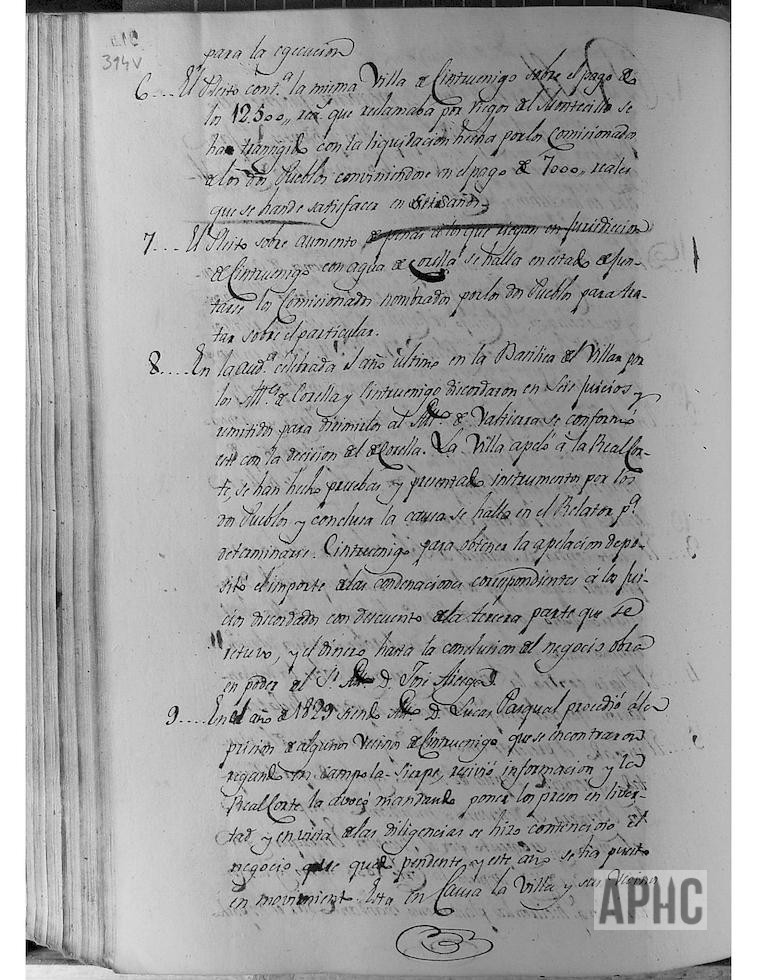 394v
para la egecucion
6... El Pleito cont.ª la misma Villa de Cintruenigo sobre el pago de
los 12500,, rs. que reclamaba por riegos del Montecillo se
han transigido con la liquidacion hecha por los Comisionados
de los dos Pueblos conviniendose en el pago de 7000,, reales
que se han de satisfacer en seis años.
7... El Pleito sobre aumento de penas a los que riegan en Jurisdiccion
de Cintruenigo con agua de Corella se halla en estado de jun-
tarse los Comisionados nombrados por los dos Pueblos para tra-
tar sobre el particular.
8.... En la aud.ª celebrada el año ultimo en la Basilica del Villar por
los Alc.es de Corella y Cintruenigo discordaron en seis juicios y
remitidos para dirimirlos al Alc.e de Valtierra se conformó
este con la decision del de Corella. La Villa apeló a la Real Cor-
te, se han hecho pruebas y presentado instrumentos por los
dos Pueblos y conclusa la causa se halla en el Relator p.ª
determinarse. Cintruenigo para obtener la apelacion depo-
sitó el importe de las condenaciones correspondientes á los jui-
cios discordados con descuento de la tercera parte que se
retuvo, y el dinero hasta la conclusion del negocio obra
en poder del S.r Alc.e D. José
9.... En el año de 1829 siendo Alc.e D. Lucas Pasqual procedió á la
prision de algunos Vecinos de Cintruenigo que se encontraron
regando en campo la-Sierpe, recivió informacion y la
Real Corte la avocó mandando poner los presos en liver-
tad y en vista de las diligencias se hizo contencioso el
negocio que quedó pendente, y este año se ha puesto
en movimiento. Esta en Causa la Villa y sus Vecinos
APHC